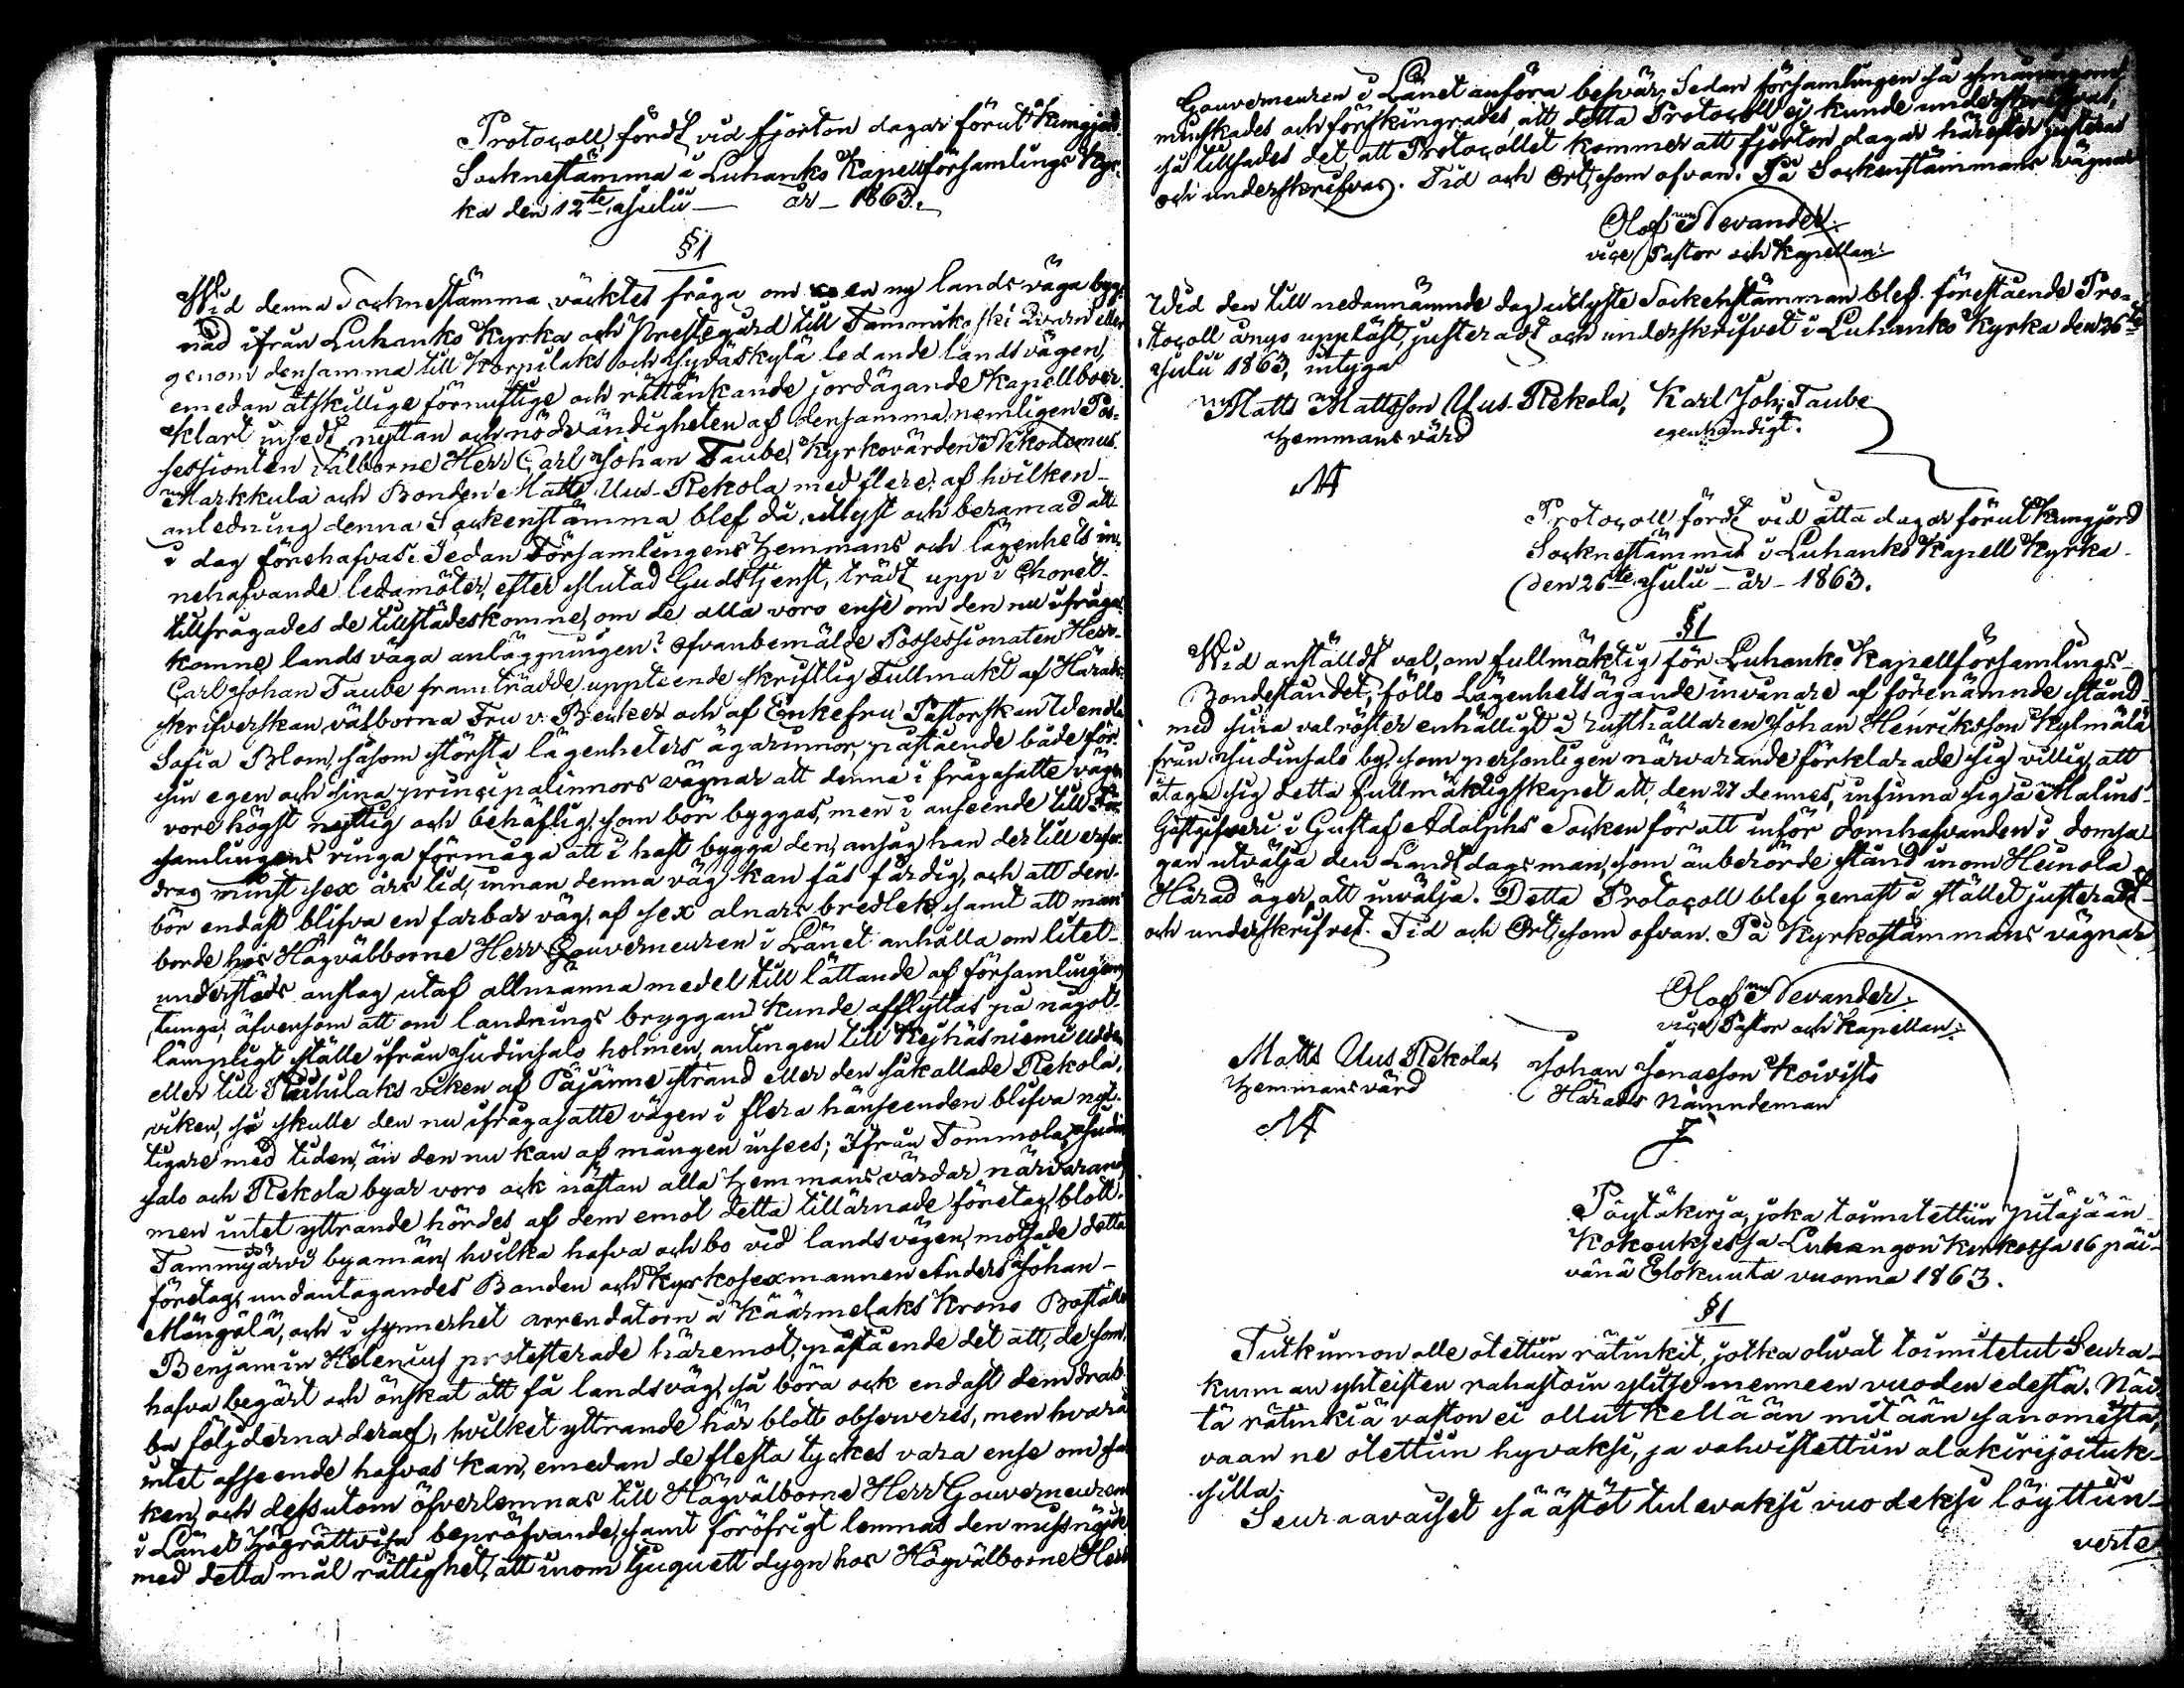 Protocoll, fördt vid fjorton dagar förut Kungjord
Socknestämma i Luhanko Kapellförsamlings Kyr-
ka den 12te Julii — år — 1863.
§ 1
Wid denna Socknestämma väcktes fråga om en ny lands väga byg-
nad ifrån Luhanko Kyrka och Prestegård till Tammikoski Qvarn eller
genom densamma till Korpilaks och Jyväskylä ledande landsvägen,
emedan åtskillige förnuftige och rättänkande jordägande Kapellboer
klart insedt nyttan och nödvändigheten af densamma, nemligen Pos-
sessionten Välborne Herr Carl Johan Taube, Kyrkovärden Nikodemus
Markkula och Bonden Matts Uus-Rekola med flere; af hvilken
anledning denna Sockenstämma blef då utlyst och beramad att
i dag förehafvas. Sedan Församlingens Hemmans och lägenhets in-
nehafvande ledamöter, efter slutad Gudstjenst, trädt upp i Choret
tillfrågades de tillstädeskomne, om de alla voro ense om den nu ifråga
komne lands väga anläggningen? Ofvanbemälde Possessionaten Herr
Carl Johan Taube framträdde uppteende skriftlig Fullmakt af Härads-
skrifverskan, välborna Fru v. Becker och af Enkefru Pastorskan Wendla
Sofia Blom, såsom största lägenheters ägarinnor, påstående både för
sin egen och sina principalinnors vägnar att denna i frågasatte väge
vore högst nyttig och behöflig, som bör byggas, men i anseende till För-
samlingens ringa förmåga att i hast bygga den, ansåg han der till erfor-
dras minst sex års tid, innan denna väg kan fås färdig, och att den
bör endast blifva en farbar väg, af sex alnars bredlek, samt att man
borde hos Högvälborne Herr Gouverneuren i Länet anhålla om litet
understöds anslag utaf allmänna medel till lättande af församlingens
tunga, äfvensom att om landnings bryggan kunde afflyttas på något
lämpligt ställe ifrån Judinsalo holmen, antingen till Keihäsniemi udden
eller till laks viken af Päjänne strand eller den såkallade Rekola
viken, så skulle den nu ifrågasatte vägen i flera hänseenden blifva nyt-
tigare med tiden, än den nu kan af mången inses; Ifrån Tommola, Judin
salo och Rekola byar voro ock nästan alla Hemmans värdar närvarand
men intet yttrande hördes af dem emot detta tillärnade företag, blott
Tammijärvi byamän, hvilka hafva och bo vid landsvägen, motsade detta
företag, undantagandes Bonden och Kyrkosexmannen Anders Johan
Mängälä, och i synnerhet arrendatorn å Käärmelaks Krono Boställe
Benjamin Helenius protesterade häremot, påstående det att, de som
hafva begärt och önskat att få landsväg, så böra ock endast dem drab-
ba följderna deraf, hvilket yttrande här blott observeres, men hvarå
intet afseende hafvas kan, emedan de flesta tyckes vara ense om sa-
ken, och dessutom öfverlemnas till Högvälborne Herr Gouverneuren
i Länet Högrättvisa bepröfvande, samt föröfrigt lemnas den missnöjde
med detta mål rättighet, att inom tjuguett dygn hos Högvälborne Herr
Gouverneuren i Länet anföra besvär; Sedan församlingen så småningom
minskades och förskingrades, att detta Protocoll ej kunde underskrifvas,
så tillsades det, att Protocollet kommer att fjorton dagar härefter justeras
och underskrifvas. Tid och Ort, som ofvan. På Sockenstämmans vägnar
Olof Nevander.
vice Pastor och Kapellan.
Wid den till nedannämnde dag utlyste Sockenstämman blef förestående Pro-
tocoll ånyo uppläst, justeradt och underskrifvet i Luhanko Kyrka den 26te
Julii 1863, intyga
Matts Mattsson Uus-Rekola, Karl Joh: Taube
Hemmans värd egenhändigt.
Protocoll fördt vid åtta dagar förut Kungjord
Socknestämma i Luhanko Kapell Kyrka
den 26te Julii — år — 1863.
§ 1
Wid anställdt val, om fullmäktig för Luhanko Kapellförsamlings
Bondeståndet, föllo Lägenhets ägande invånare af förenämnde stånd
med sina valröster enhälligt å rusthållaren Johan Henriksson Kylmälä
från Judinsalo by, som personligen närvarande förklarade sig villig, att
åtaga sig detta fullmäktigskapet att, den 27 dennes, infinna sig å Malins
Gästgifveri i Gustaf Adolphs Socken för att inför Domhafvanden i domsa-
gan utvälja den Landtdagsman, som änberörde stånd inom Heinola
Härad äger, att invälja. Detta Protocoll blef genast å stället justeradt
och underskrifvet. Tid och Ort, som ofvan. På Kyrkostämmans vägnar
Olof Nevander.
vice Pastor och Kapellan.
Matts Uus Rekola, Johan Jonasson Koivisto
Hemmansvärd Härads Nämndeman
Pöytäkirja, joka toimitettiin pitäjään
Kokouksessa Luhangon kirkossa 16 päi-
vänä Elokuuta vuonna 1863.
§ 1
Tutkinnon alle otettiin rätinkit, jotka olivat toimitetut Seura-
kunnan yhteisten rahastoin ylitse menneen vuoden edestä. Näi-
tä rätinkiä vaston ei ollut kellään mitään sanomista,
vaan ne otettiin hyväksi, ja vahvistettiin alakirjoituk-
silla.
Seuraavaiset säästöt tulevaksi vuodeksi löyttiin
verte